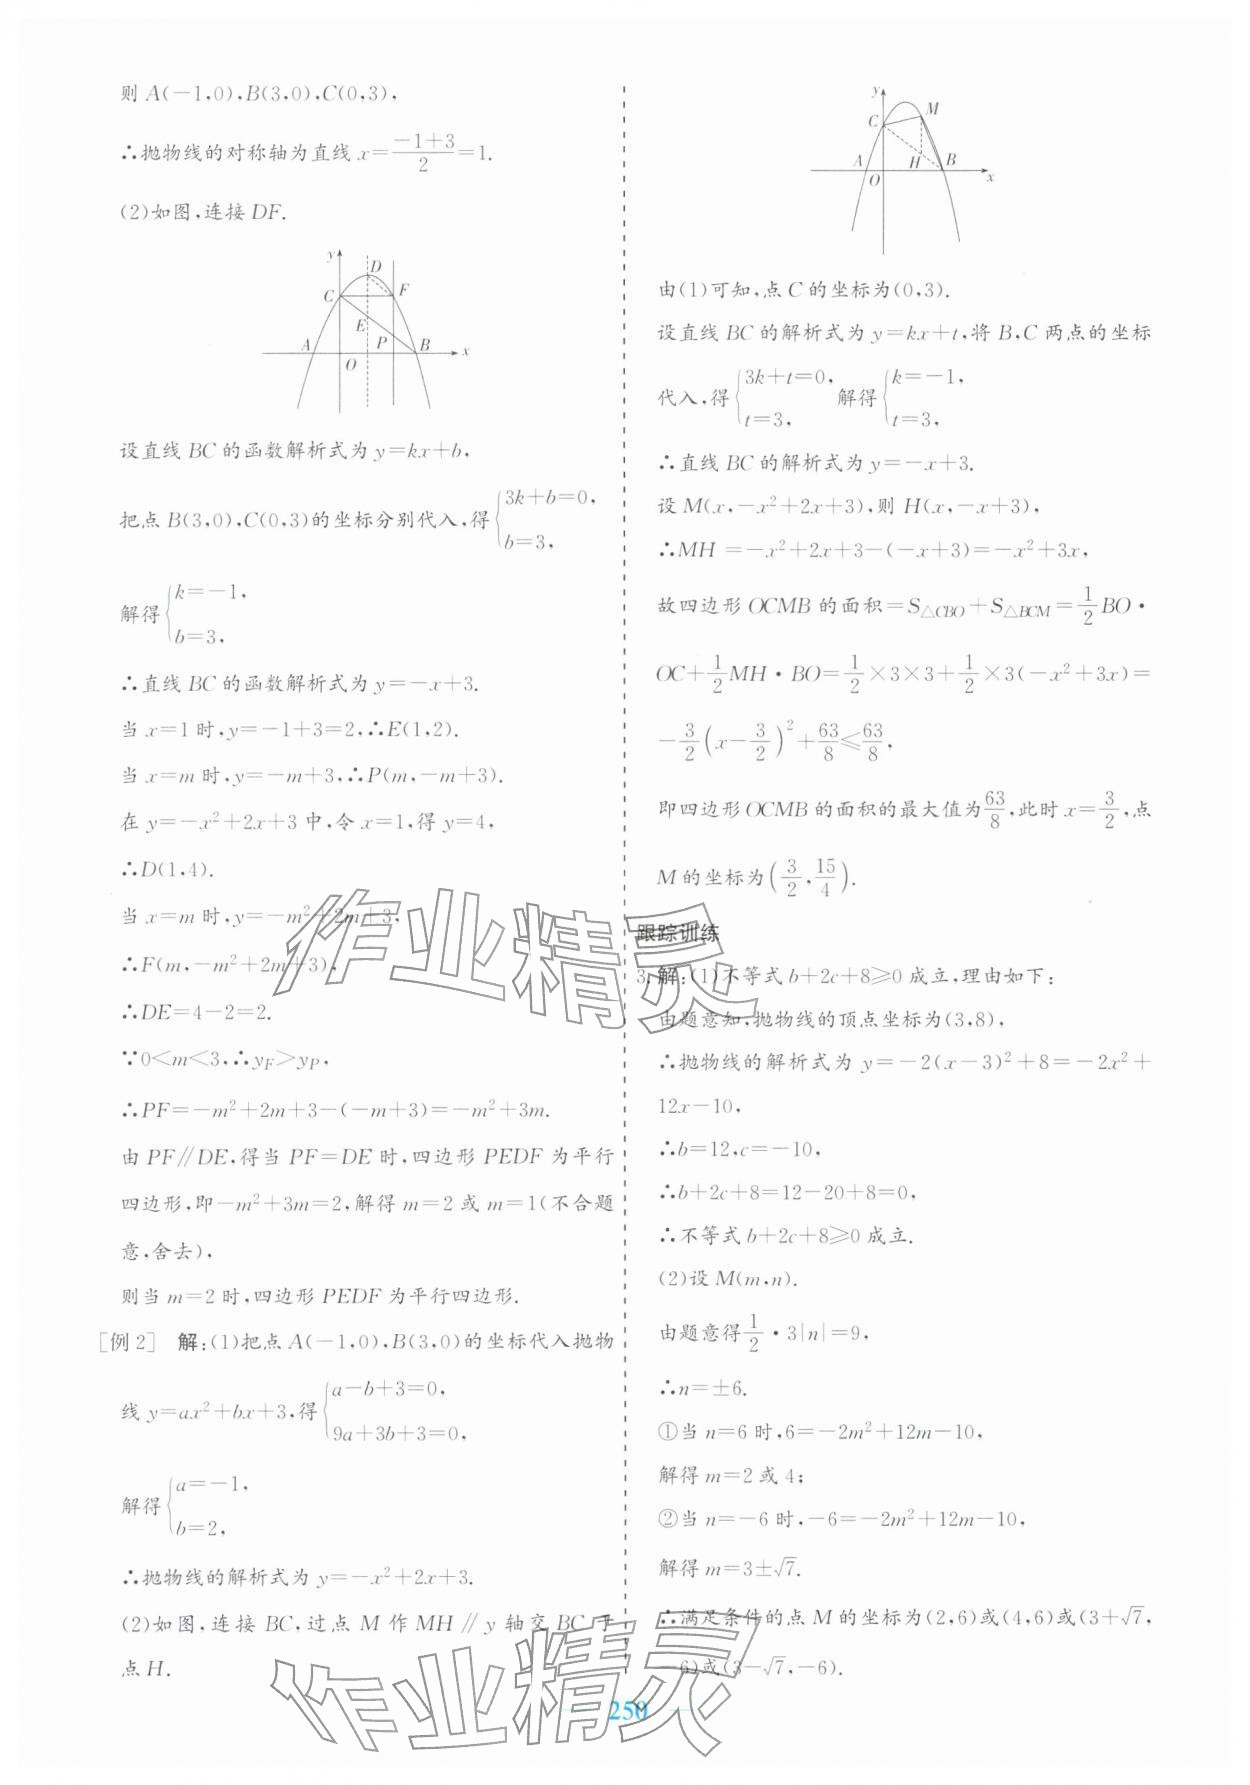 则 A(-1,0),B(3,0),C(0,3),
∴抛物线的对称轴为直线 x=\frac{-1+3}{2}=1.
(2)如图,连接 DF.
y
D
C
F
E
A
P
B
O
x
设直线 BC 的函数解析式为 y=kx+b,
把点 B(3,0),C(0,3)的坐标分别代入,得{3k+b=0,
b=3,
解得{k=-1,
b=3,
∴直线 BC 的函数解析式为 y=-x+3.
当 x=1 时,y=-1+3=2,∴E(1,2).
当 x=m 时,y=-m+3,∴P(m,-m+3).
在 y=-x²+2x+3 中,令 x=1,得 y=4,
∴D(1,4).
当 x=m 时,y=-m²+2m+3,
∴F(m,-m²+2m+3),
∴DE=4-2=2.
∵0<m<3,∴y_F>y_P,
∴PF=-m²+2m+3-(-m+3)=-m²+3m.
由 PF∥DE,得当 PF=DE 时,四边形 PEDF 为平行
四边形,即-m²+3m=2,解得 m=2 或 m=1(不合题
意,舍去),
则当 m=2 时,四边形 PEDF 为平行四边形.
[例2] 解:(1)把点 A(-1,0),B(3,0)的坐标代入抛物
线 y=ax²+bx+3,得{a-b+3=0,
9a+3b+3=0,
解得{a=-1,
b=2,
∴抛物线的解析式为 y=-x²+2x+3.
(2)如图,连接 BC,过点 M 作 MH∥y 轴交 BC 于
点 H.
y
C
M
A
H
B
O
x
由(1)可知,点 C 的坐标为(0,3).
设直线 BC 的解析式为 y=kx+t,将 B,C 两点的坐标
代入,得{3k+t=0,
t=3,
解得{k=-1,
t=3,
∴直线 BC 的解析式为 y=-x+3.
设 M(x,-x²+2x+3),则 H(x,-x+3),
∴MH =-x²+2x+3-(-x+3)=-x²+3x,
故四边形 OCMB 的面积=S_{△CBO}+S_{△BCM}=\frac{1}{2}BO·
OC+\frac{1}{2}MH·BO=\frac{1}{2}×3×3+\frac{1}{2}×3(-x²+3x)=
-\frac{3}{2}(x-\frac{3}{2})²+\frac{63}{8}≤\frac{63}{8},
即四边形 OCMB 的面积的最大值为\frac{63}{8},此时 x=\frac{3}{2},点
M 的坐标为(\frac{3}{2},\frac{15}{4}).
跟踪训练
3.解:(1)不等式 b+2c+8≥0 成立,理由如下:
由题意知,抛物线的顶点坐标为(3,8),
∴抛物线的解析式为 y=-2(x-3)²+8=-2x²+
12x-10,
∴b=12,c=-10,
∴b+2c+8=12-20+8=0,
∴不等式 b+2c+8≥0 成立.
(2)设 M(m,n).
由题意得\frac{1}{2}·3|n|=9,
∴n=±6.
①当 n=6 时,6=-2m²+12m-10,
解得 m=2 或 4;
②当 n=-6 时,-6=-2m²+12m-10,
解得 m=3±√7.
∴满足条件的点 M 的坐标为(2,6)或(4,6)或(3+√7,
-6)或(3-√7,-6).
250
作业精灵
作业精灵